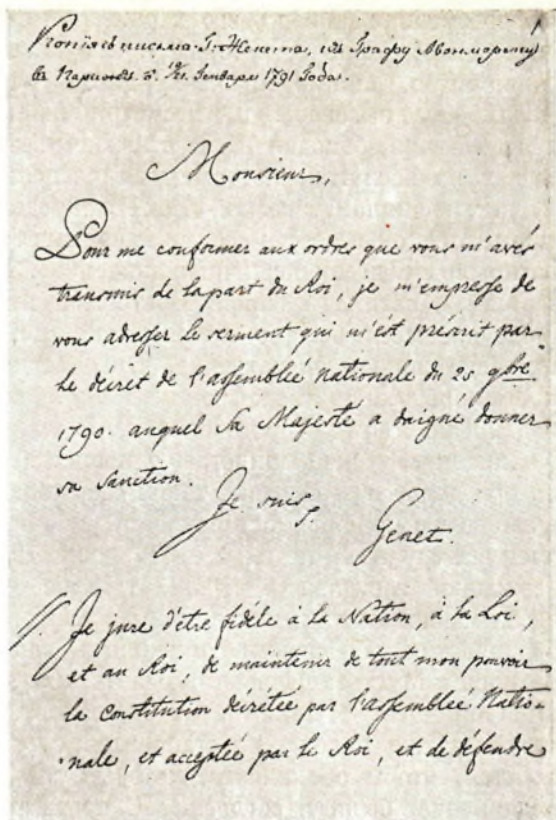 Копія съ письма Г: Женета, къ Графу Монморену
въ Парижъ. 10/21. Генваря 1791 Года.
Monsieur,
Pour me conformer aux ordres que vous m'avés
transmis de la part du Roi, je m'empresse de
vous adresser le serment qui m'ést préscrit par
le décret de l'assembleé Nationale du 25 9bre
1790. auquel Sa Majesté a daigné donner
sa Sanction.
Je suis
Genet.
Je jure d'etre fidéle à la Nation, à la Loi,
et au Roi, de maintenir de tout mon pouvoir
la Constitution décrétée par l'assembleé Natio-
nale, et acceptée par le Roi, et de défendre